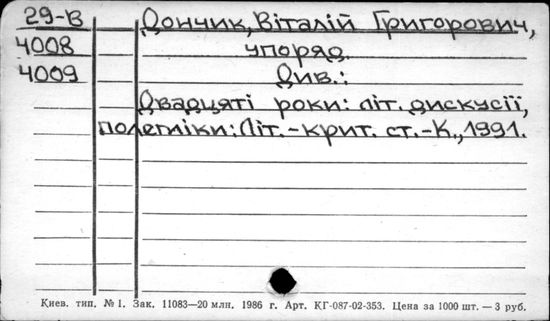 29-В Дончик, Віталій Григорович,
4008 упоряд.
4009 Див.:
Двадцяті роки: літ. дискусії,
полеміки: Літ.-крит. ст.-К., 1991.
Киев. тип. № 1. Зак. 11083—20 млн. 1986 г. Арт. КГ-087-02-353. Цена за 1000 шт. — 3 руб.